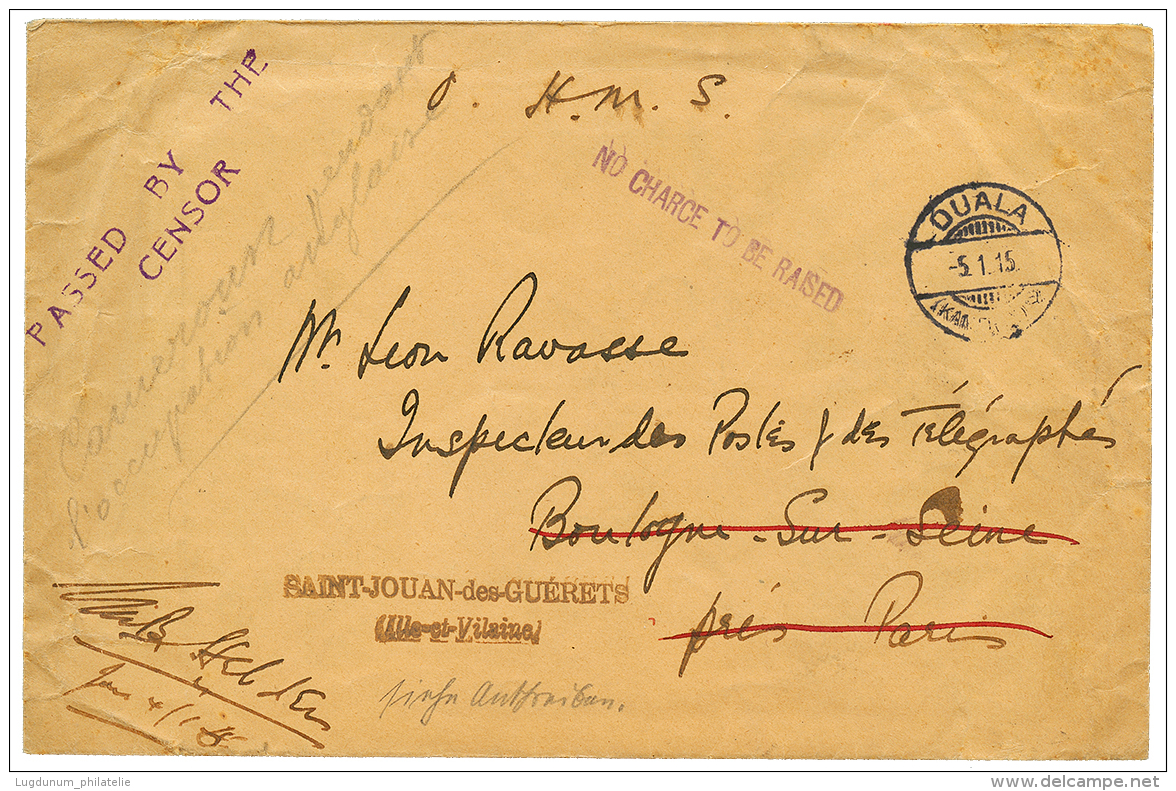 O. H. M. S.
PASSED BY THE
CENSOR
Cameroun pendant
l'occupation anglaise
NO CHARGE TO BE RAISED
DUALA
-5.1.15.
Mr. Léon Ravasse
Inspecteur des Postes & des Télégraphes
Boulogne-Sur-Seine
près Paris
SAINT-JOUAN-des-GUÉRETS
(Ille-et-Vilaine)
siehe
Lugdunum_philatelie
www.delcampe.net